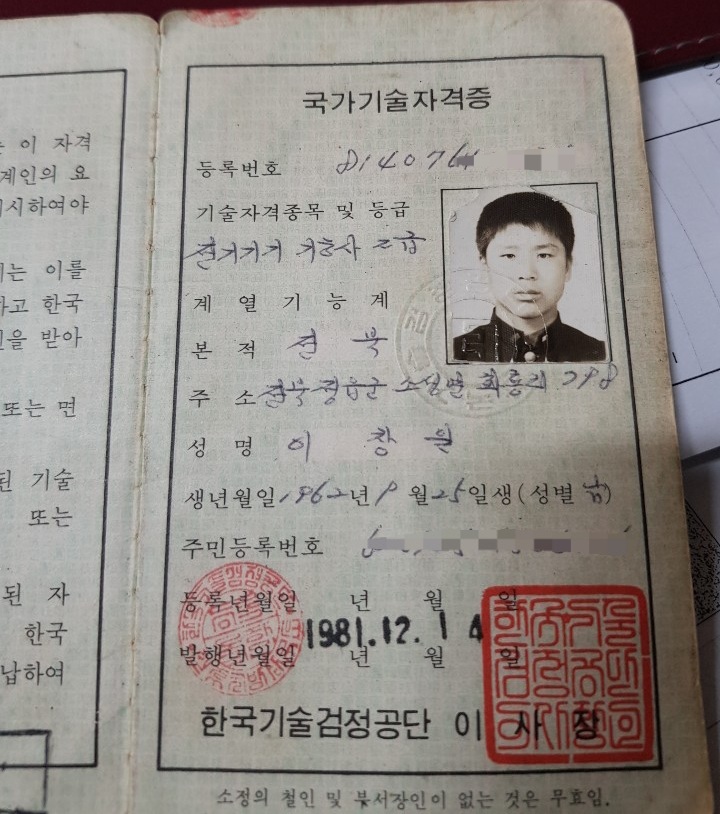 는 이 자격
계인의 요
시하여야
는 이를
하고 한국
을 받아
또는 면
된 기술
또는
된 자
한국
납하여
국가기술자격증
등록번호 8140761
기술자격종목 및 등급
전기기기 기능사 2급
계열 기능계
본적 전북
주소 전북 정읍군 소성면 화룡리 798
성명 이창원
생년월일 1962년 9월 25일생 (성별 남)
주민등록번호
등록년월일 년 월 일
1981.12.14
발행년월일 년 월 일
한국기술검정공단 이사장
소정의 철인 및 부서장인이 없는 것은 무효임.